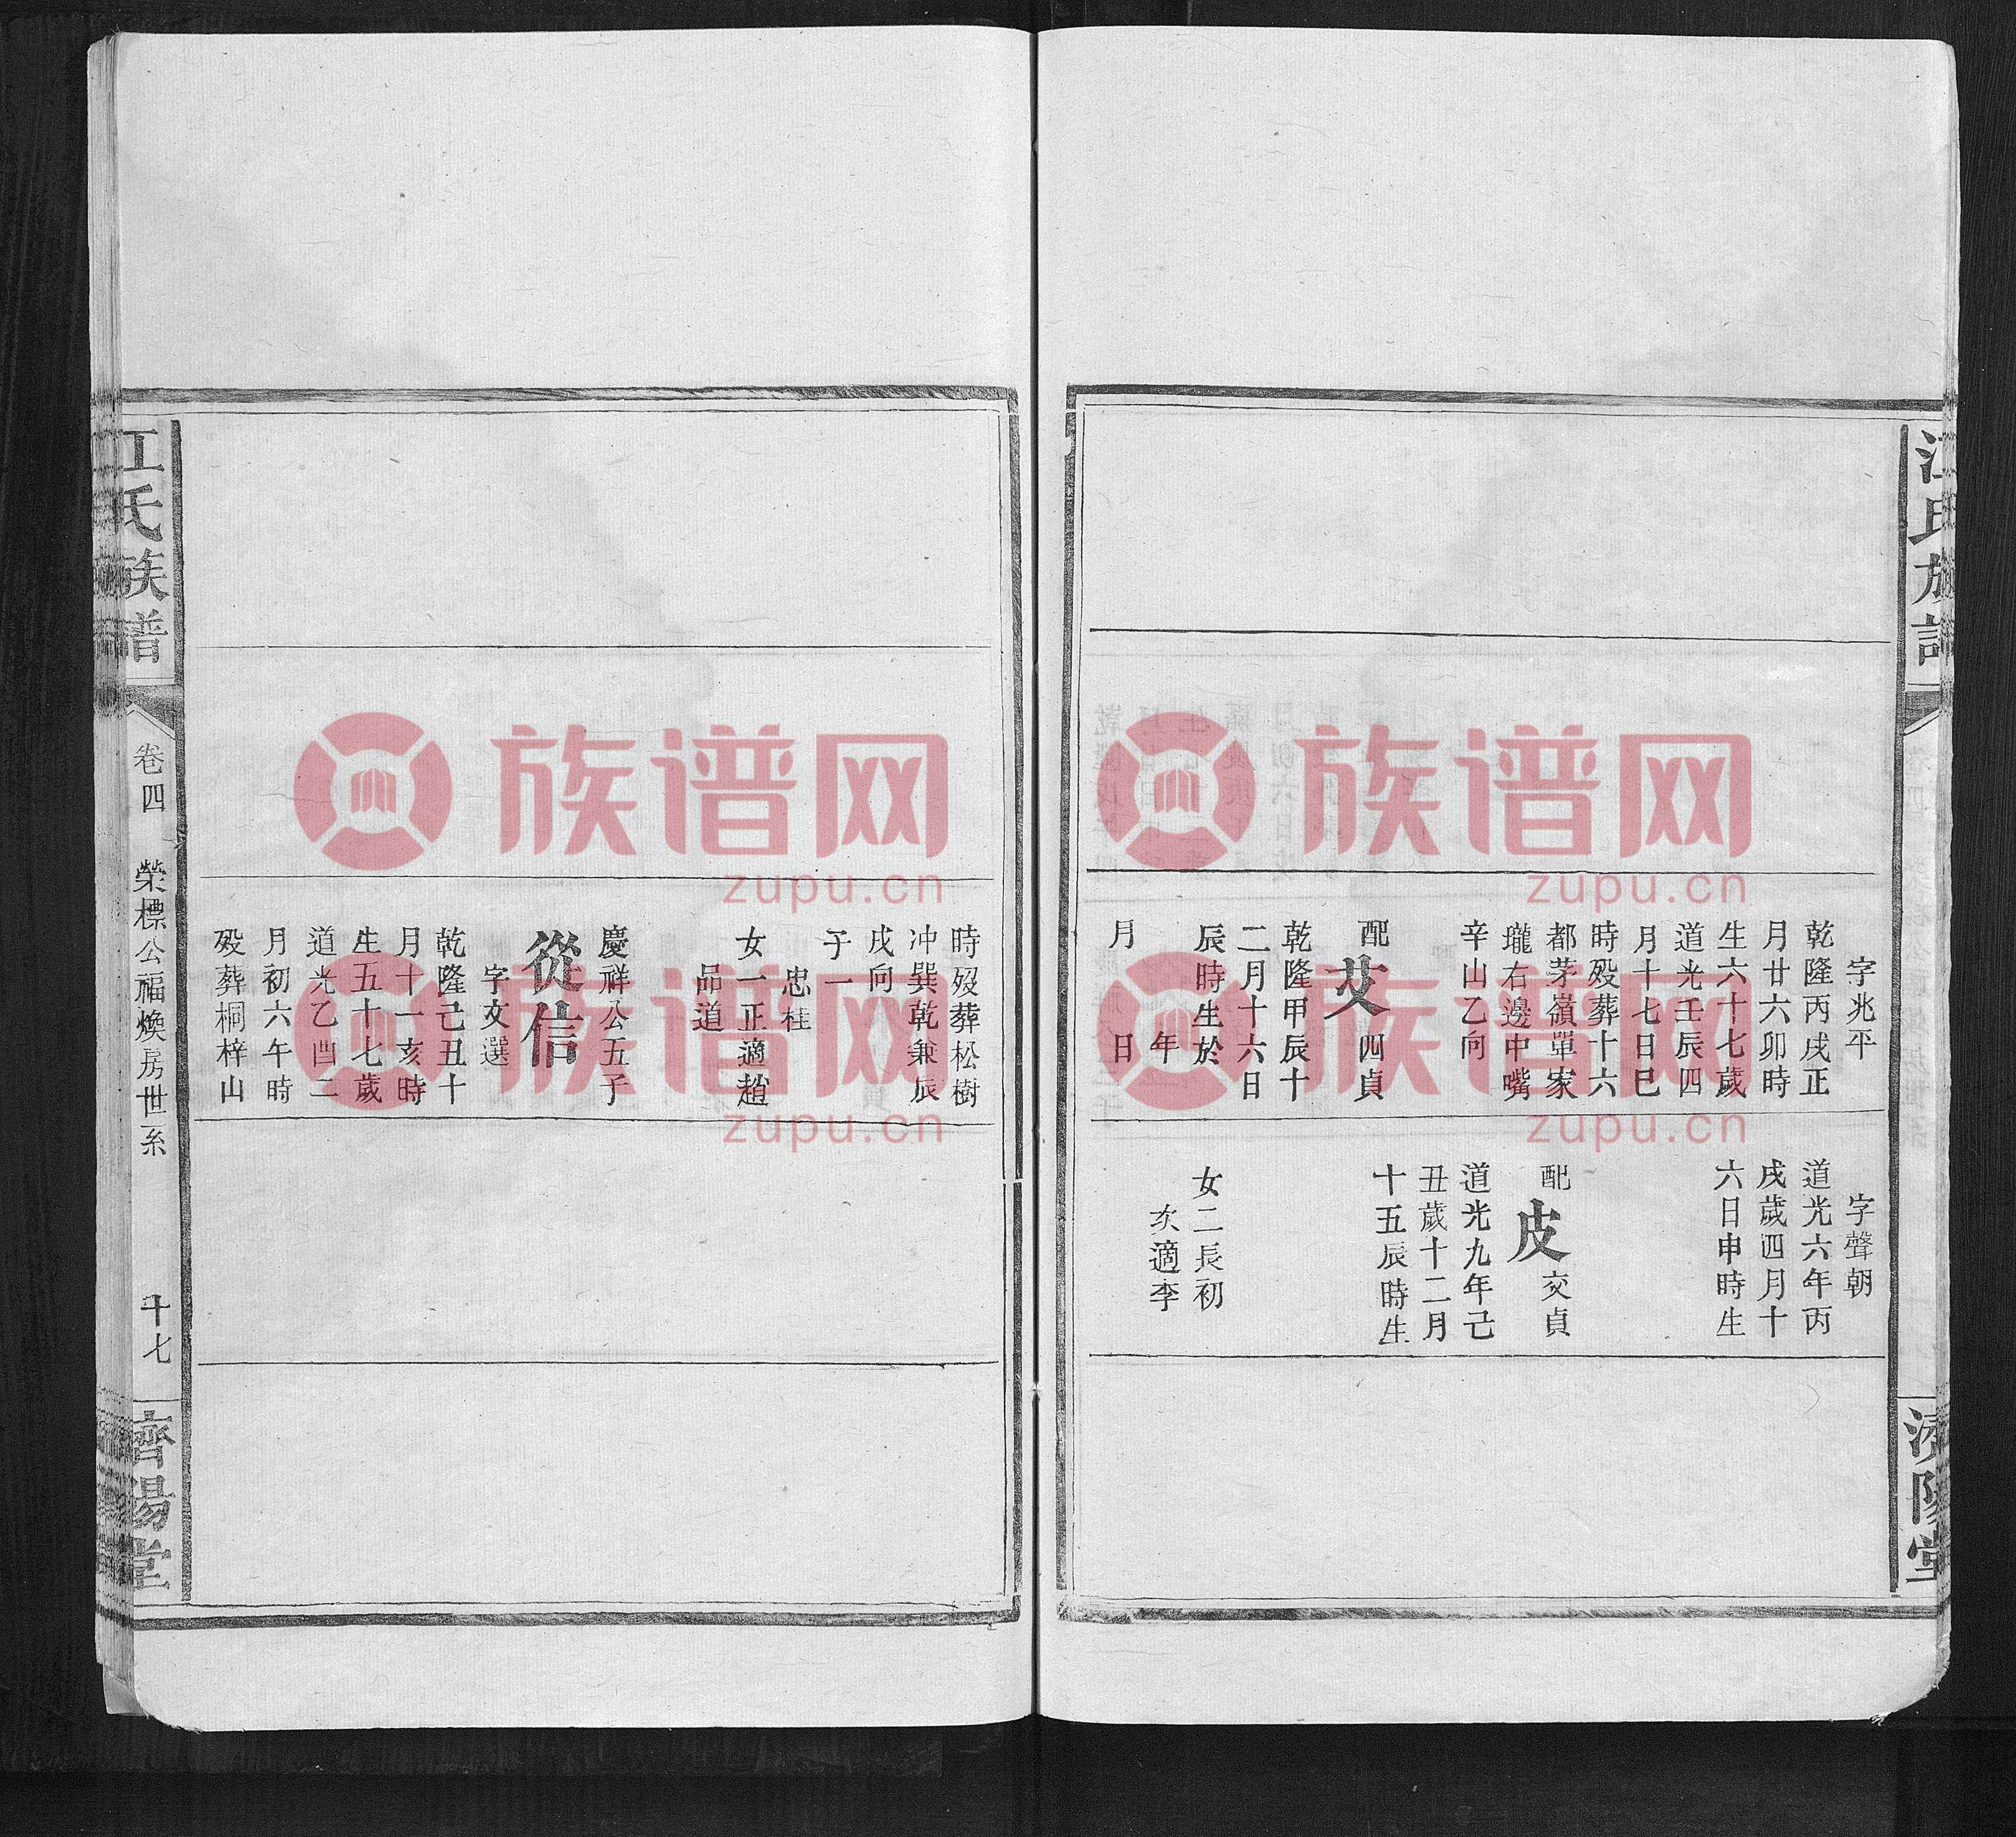 江氏族譜
濟陽堂
字兆平
乾隆丙戌正
月廿六卯時
生六十七歲
道光壬辰四
月十七日巳
時殁葬十六
都茅嶺單家
瓏右邊中嘴
辛山乙向
配艾四貞
乾隆甲辰十
二月十六日
辰時生於
年
月日
字聲朝
道光六年丙
戌歲四月十
六日申時生
配皮交貞
道光九年己
丑歲十二月
十五辰時生
女二長初
次適李
時歿葬松樹
冲巽乾兼辰
戌向
子一
忠桂
女一正適趙
品道
慶祥公五子
從信
字文選
乾隆己丑十
月十一亥時
生五十七歲
道光乙酉二
月初六午時
殁葬桐梓山
江氏族譜
卷四
榮標公福煥房世系
十七
濟陽堂
族谱网
zupu.cn
族谱网
zupu.cn
族谱网
zupu.cn
族谱网
zupu.cn